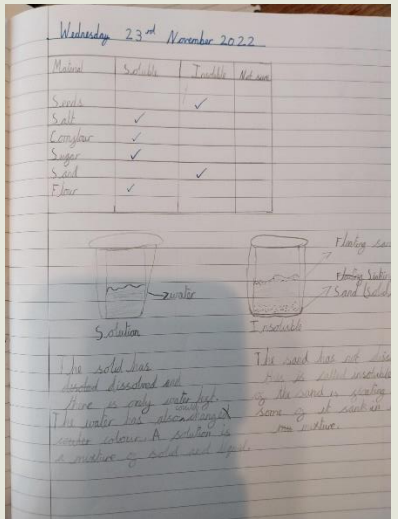 Wednesday 23rd November 2022
Material Soluble Insoluble Not sure
Seeds ✓
Salt ✓
Cornflour ✓
Sugar ✓
Sand ✓
Flour ✓
Floating
water
Floating
Sand (solid
Solution
Insoluble
The solid has
dissolved and
there is only water left.
The water has also changed
colour. A solution is
a mixture of solid and liquid.
The sand has not
this is called insoluble
of the sand is floating
some of it sank in
mixture.